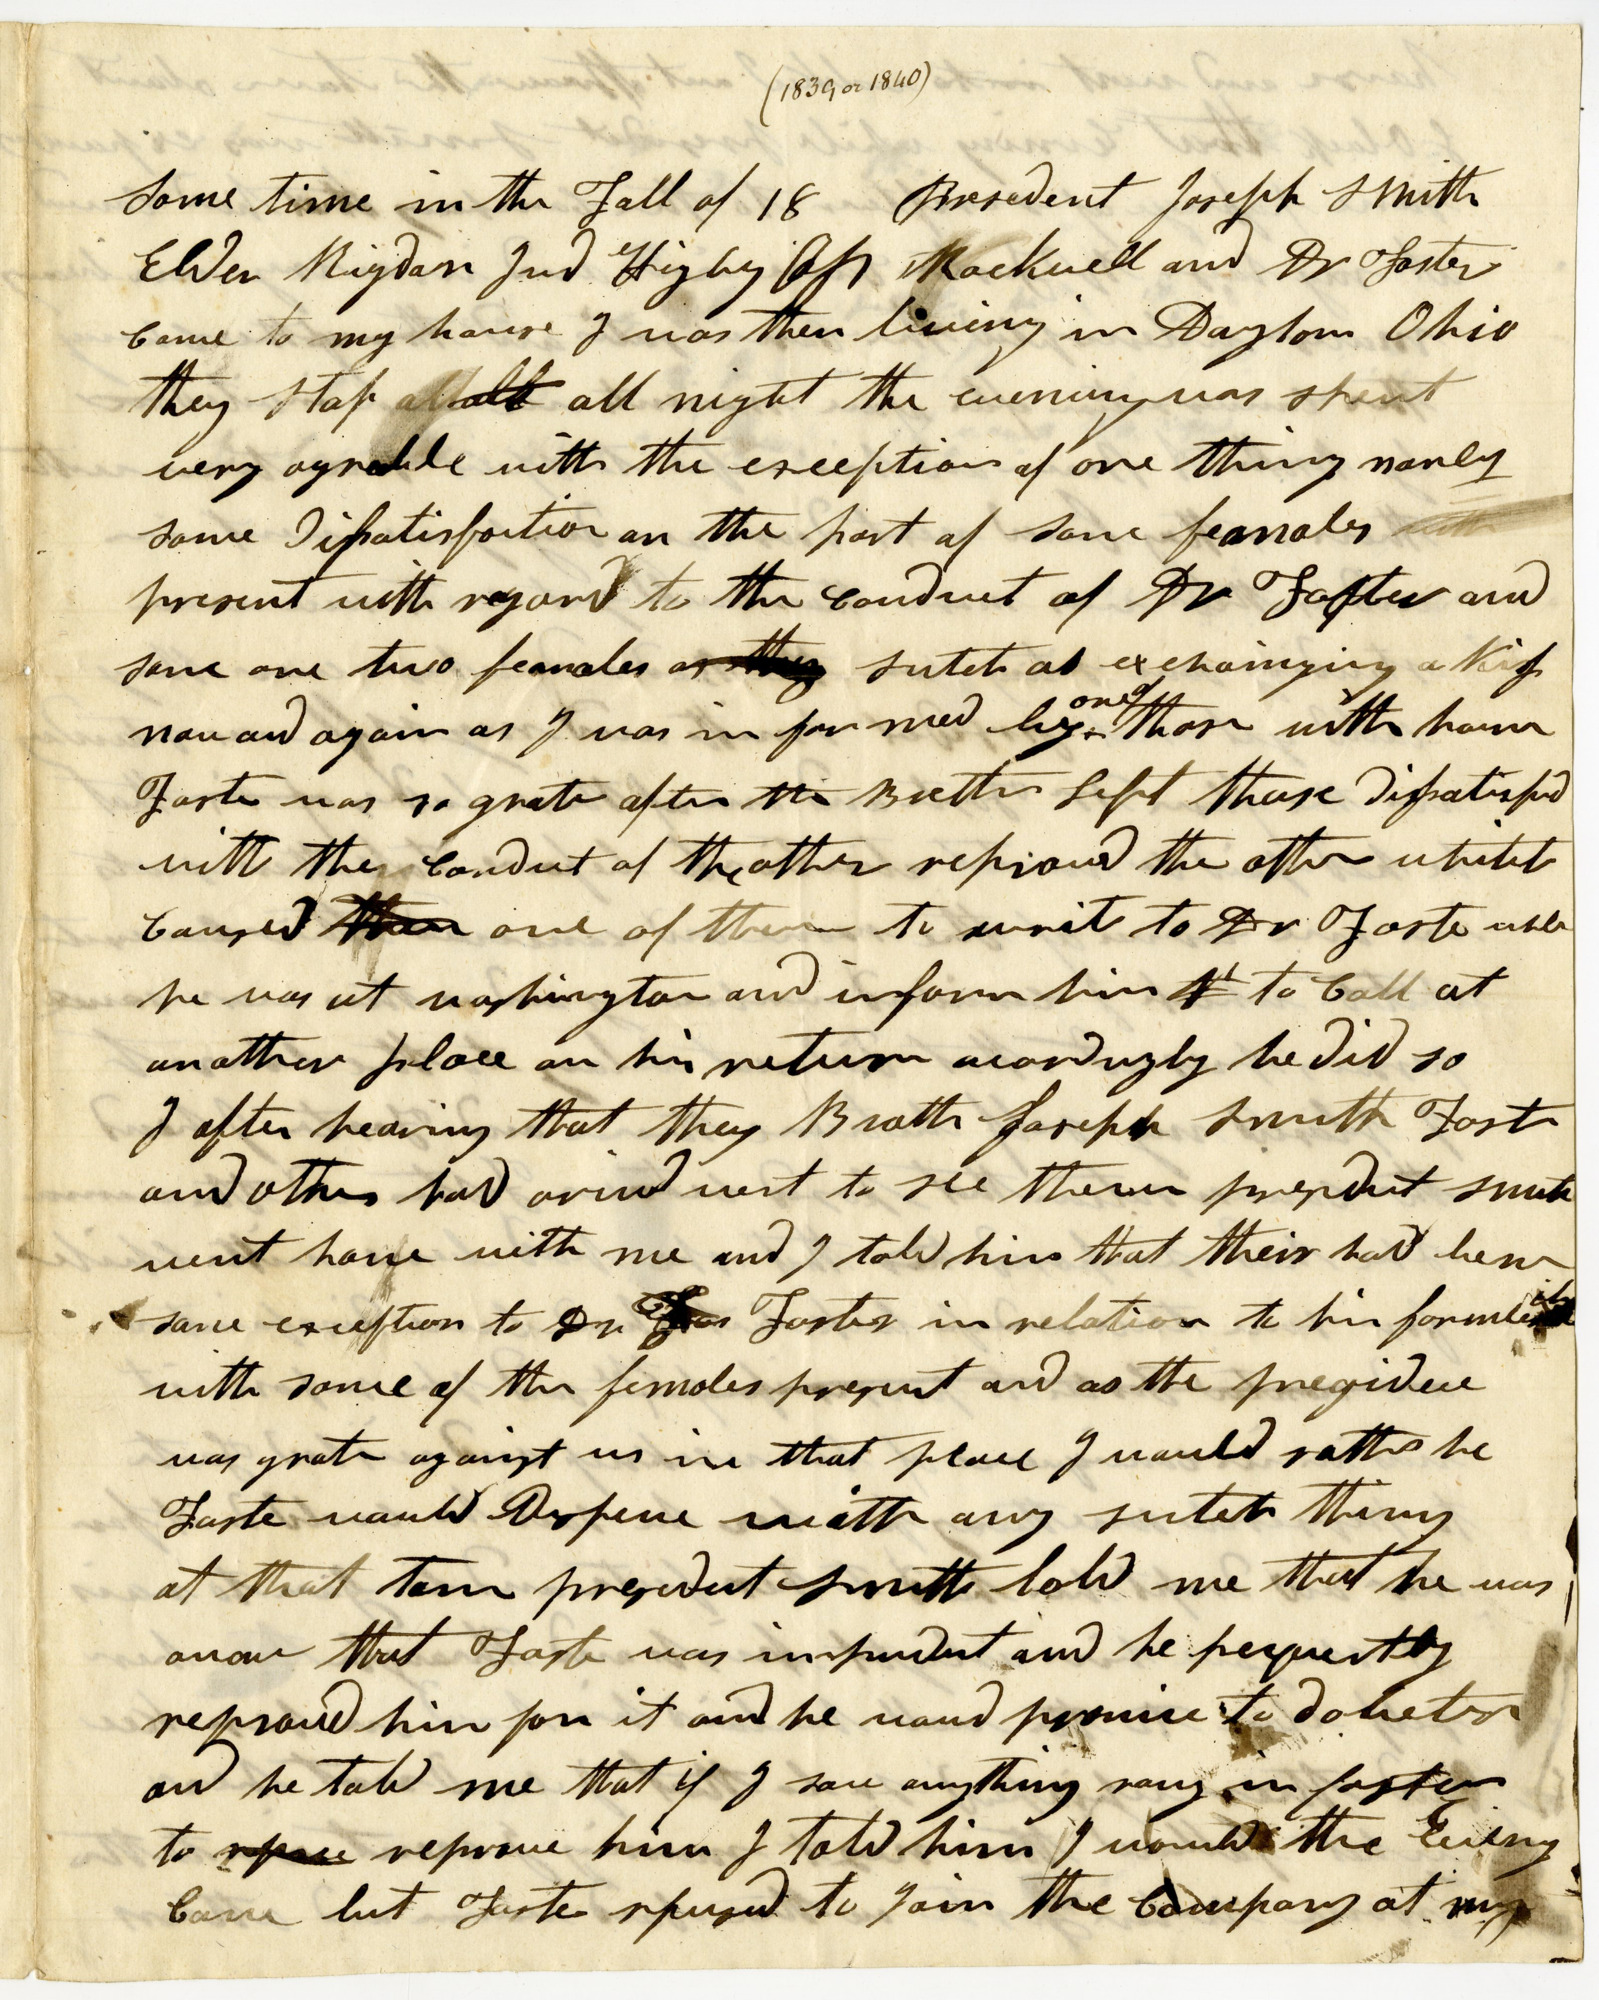 (1839 or 1840)
Some time in the Fall of 18 Presedent Joseph Smith
Elder Rigdan Jud Higby Rockwell and Dr Foster
Came to my house I was then liveing in Dayton Ohio
they Stop all night the evening was spent
very agreable with the exception of one thing namly
some Dissatisfaction on the part of some feamales
present with regard to the conduct of Dr Foster and
some one two feamales as they sutch as exchainging a Kiss
now and again as I was in for med by one of those with home
Foster was so grate after the Brethr Left those Dissatisfid
with the Conduct of the other reproved the other whitch
Caused then one of them to writ to Dr Foster while
he was at washington and inform him to Call at
another place on his return acordingly he did so
I after hearing that they Broth Joseph Smith Foster
and others had arived went to see them president smith
went home with me and I told him that their had been
some exception to Dr Foster in relation to his formileri
with some of the females present and as the pregidice
was grate against us in that place I would rather he
Foster would Dispence with any sutch thing
at that tim president Smith told me that he was
awar that Foster was impudent and he frequently
reproved him for it and he woud promise to do better
and he told me that if I saw anything rong in foster
to reprove him I told him I would the Evening
Came but Foster refused to Join the Company at my